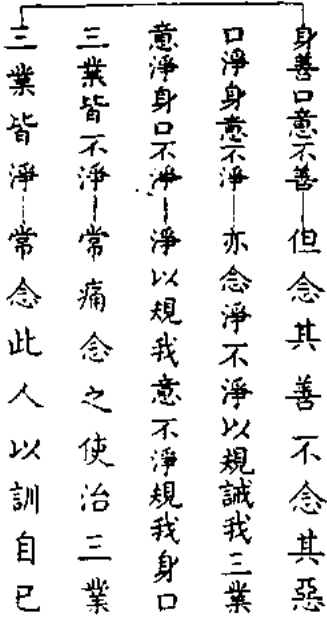 身善口意不善——但念其善不念其惡
口淨身意不淨——亦念淨不淨以規誡我三業
意淨身口不淨——淨以規我意不淨規我身口
三業皆不淨——常痛念之使治三業
三業皆淨——常念此人以訓自已